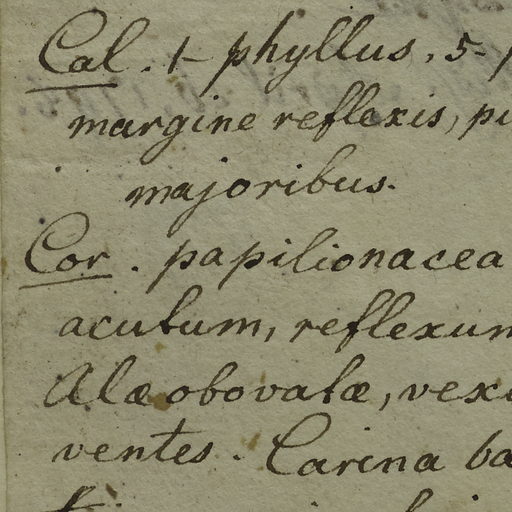 Cal. 1-phyllus, 5-
margine reflexis,
majoribus.
Cor. papilionacea
acutum, reflexum
Alæ obovatæ,
ventes. Carina